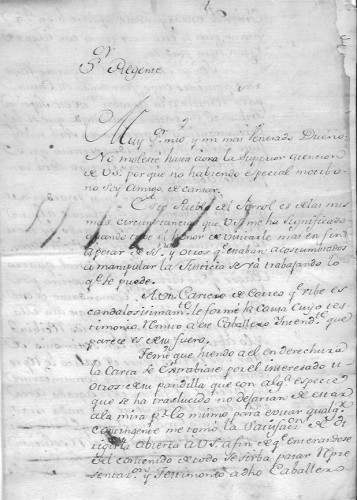 Sr. Regente
Muy Sr. mio y mi mas Venerado Dueño:
No molesté hasta aora la Superior atencion
de VS. porque no habiendo especial motibo
no soy Amigo de cansar.
Este Pueblo del Ferrol es de las mis
mas circunstancias que VS. me ha significado
quando tube el honor de visitarle mas en fin a
pesar de Dn. y otros qe. estaban acostumbrados
a manipular la Justicia se va trabajando lo
qe. se puede.
A un Cartero de Correos qe. ribe es
candalosisimamte. le formé la causa cuyo tes
timonio remito a ese Caballero Intendte. que
parece es de su fuero.
Temi que hiendo a el en derechura
la Carta se extrabiase por el interesado u
otros de su pandilla que con algs. especies
que se ha traslucido no dejarian de estar
a la mira pr. lo mismo para evitar qualqr.
contingente me tomo la satisfacn. de di
rigirla abierta a VS. a fin de qe. enterandose
del contenido de todo se sirba pasar
senta on. y Testimonio a dho Caballero